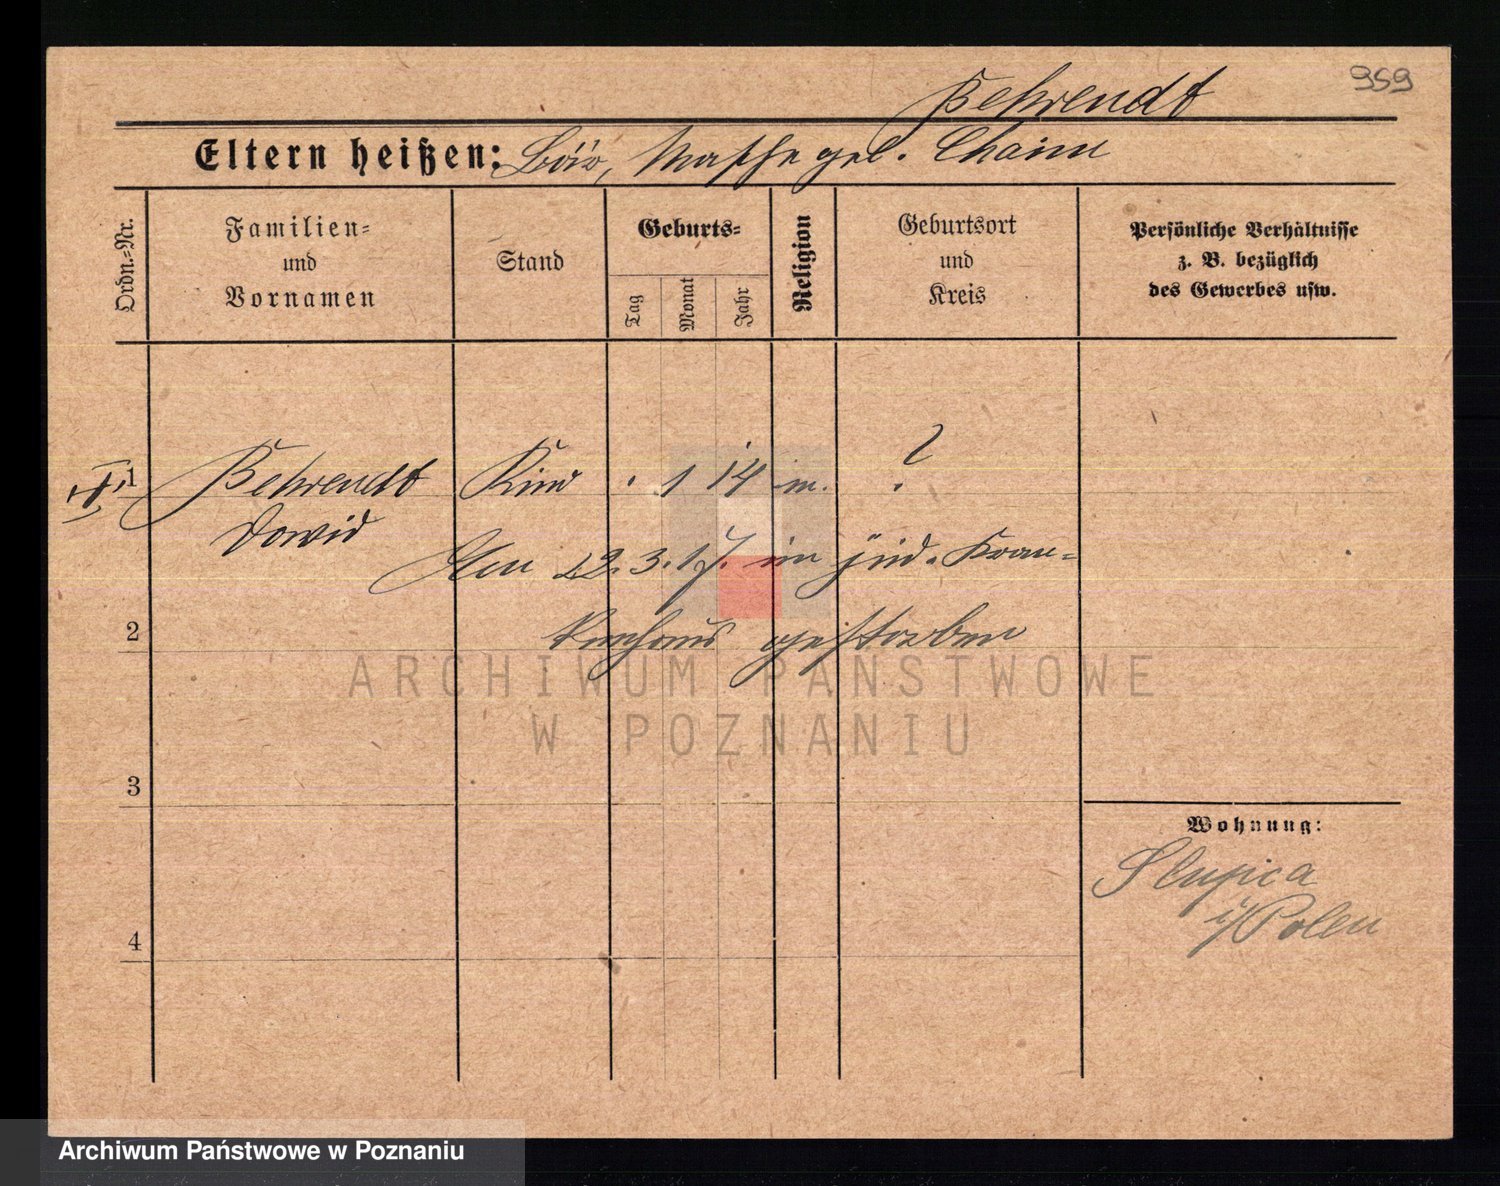 959
Behrendt
Eltern heißen: Bär, Masche geb. Chaim
Ordn.-Nr.
Familien-
und
Vornamen
Stand
Geburts-
Tag
Monat
Jahr
Religion
Geburtsort
und
Kreis
Persönliche Verhältnisse
z. B. bezüglich
des Gewerbes usw.
1 Behrendt Kind . 1 14 m. . ?
Dawid
Am 22.3.17. im jüd. Kran-
kenhaus gestorben
2
3
4
Wohnung:
Slupica
i/Polen
ARCHIWUM PAŃSTWOWE
W POZNANIU
Archiwum Państwowe w Poznaniu